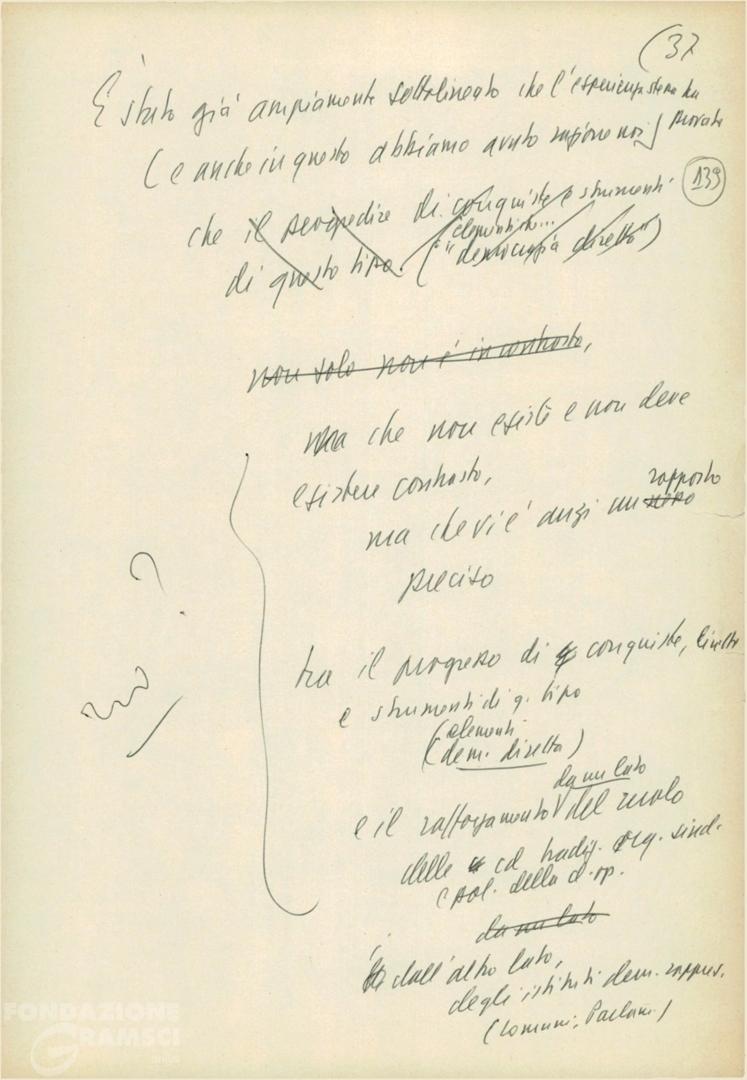 (37
È stato già ampiamente sottolineato che l'esperienza stessa ha
(e anche in questo abbiamo avuto ragione noi) provato
139
che il progredire di conquiste e strumenti
di questo tipo. (elementi di...
"democrazia diretta")
non solo non è in contrasto,
ma che non esiste e non deve
esistere contrasto,
rapporto
ma che vi è anzi un
preciso
?
tra il progresso di conquiste,
e strumenti di q. tipo
(elementi
(dem. diretta)
da un lato
e il rafforzamento del ruolo
delle cd tradiz. org. sind.
e pol. della cl. op.
da un lato
dall'altro lato,
degli istituti dem. rappres.
(Comuni, Parlam.)
FONDAZIONE
GRAMSCI